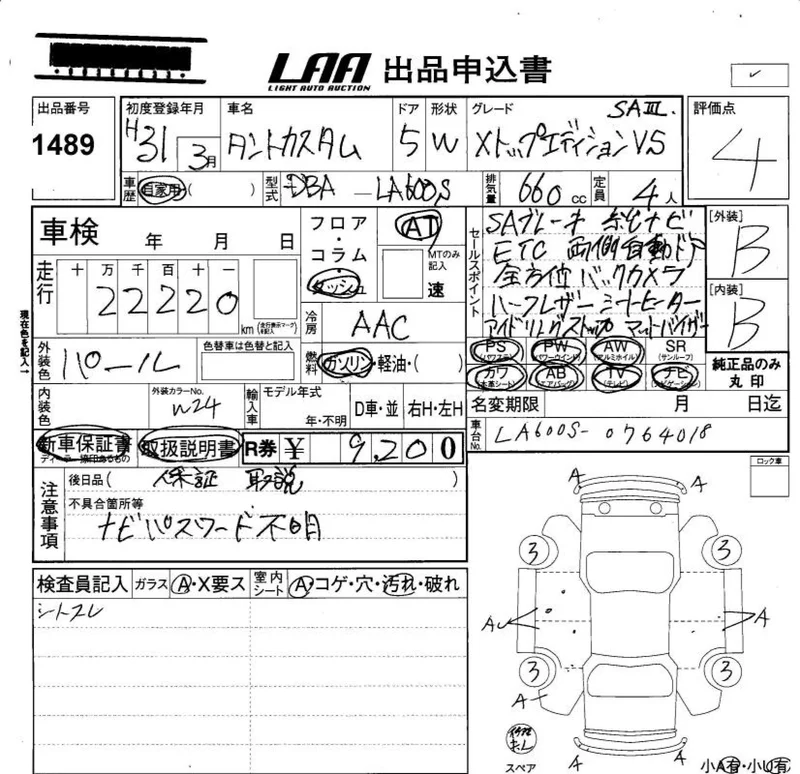 LAA 出品申込書
LIGHT AUTO AUCTION
出品番号 初度登録年月 車名 ドア 形状 グレード 評価点
1489 H31 3月 タントカスタム 5 W XトップエディションVS SAⅢ 4
車歴 自家用・( ) 型式 DBA-LA600S 排気量 660cc 定員 4人
車検 年 月 日
フロア・コラム・ダッシュ AT MTのみ記入 速
セールスポイント
SAブレーキ 純ナビ
ETC 両側自動ドア
全方位バックカメラ
ハーフレザーシートヒーター
アイドリングストップ マットバイザー
[外装] B
[内装] B
走行 十 万 千 百 十 一
22220 km (走行表示マーク※記入)
現在色を記入→
冷房 AAC
外装色 パール 色替車は色替と記入
燃料 ガソリン・軽油・( )
PS (パワステ) PW (パワーウインド) AW (アルミホイル) SR (サンルーフ)
カワ (本革シート) AB (エアバッグ) TV (テレビ) ナビ (ナビゲーション)
純正品のみ丸印
内装色 外装カラーNo. W24 輸入車 モデル年式 年・不明 D車・並 右H・左H
名変期限 月 日迄
車台No. LA600S-0764018
新車保証書 取扱説明書 R券 ¥ 9,200
ロック車
注意事項
後日品( 保証 取説 )
不具合箇所等
ナビパスワード不明
検査員記入 ガラス A・X要ス 室内シート A・コゲ・穴・汚れ・破れ
シートスレ
A
A
3 3
A A
3 3
A
A A
スペア
小A有・小U有